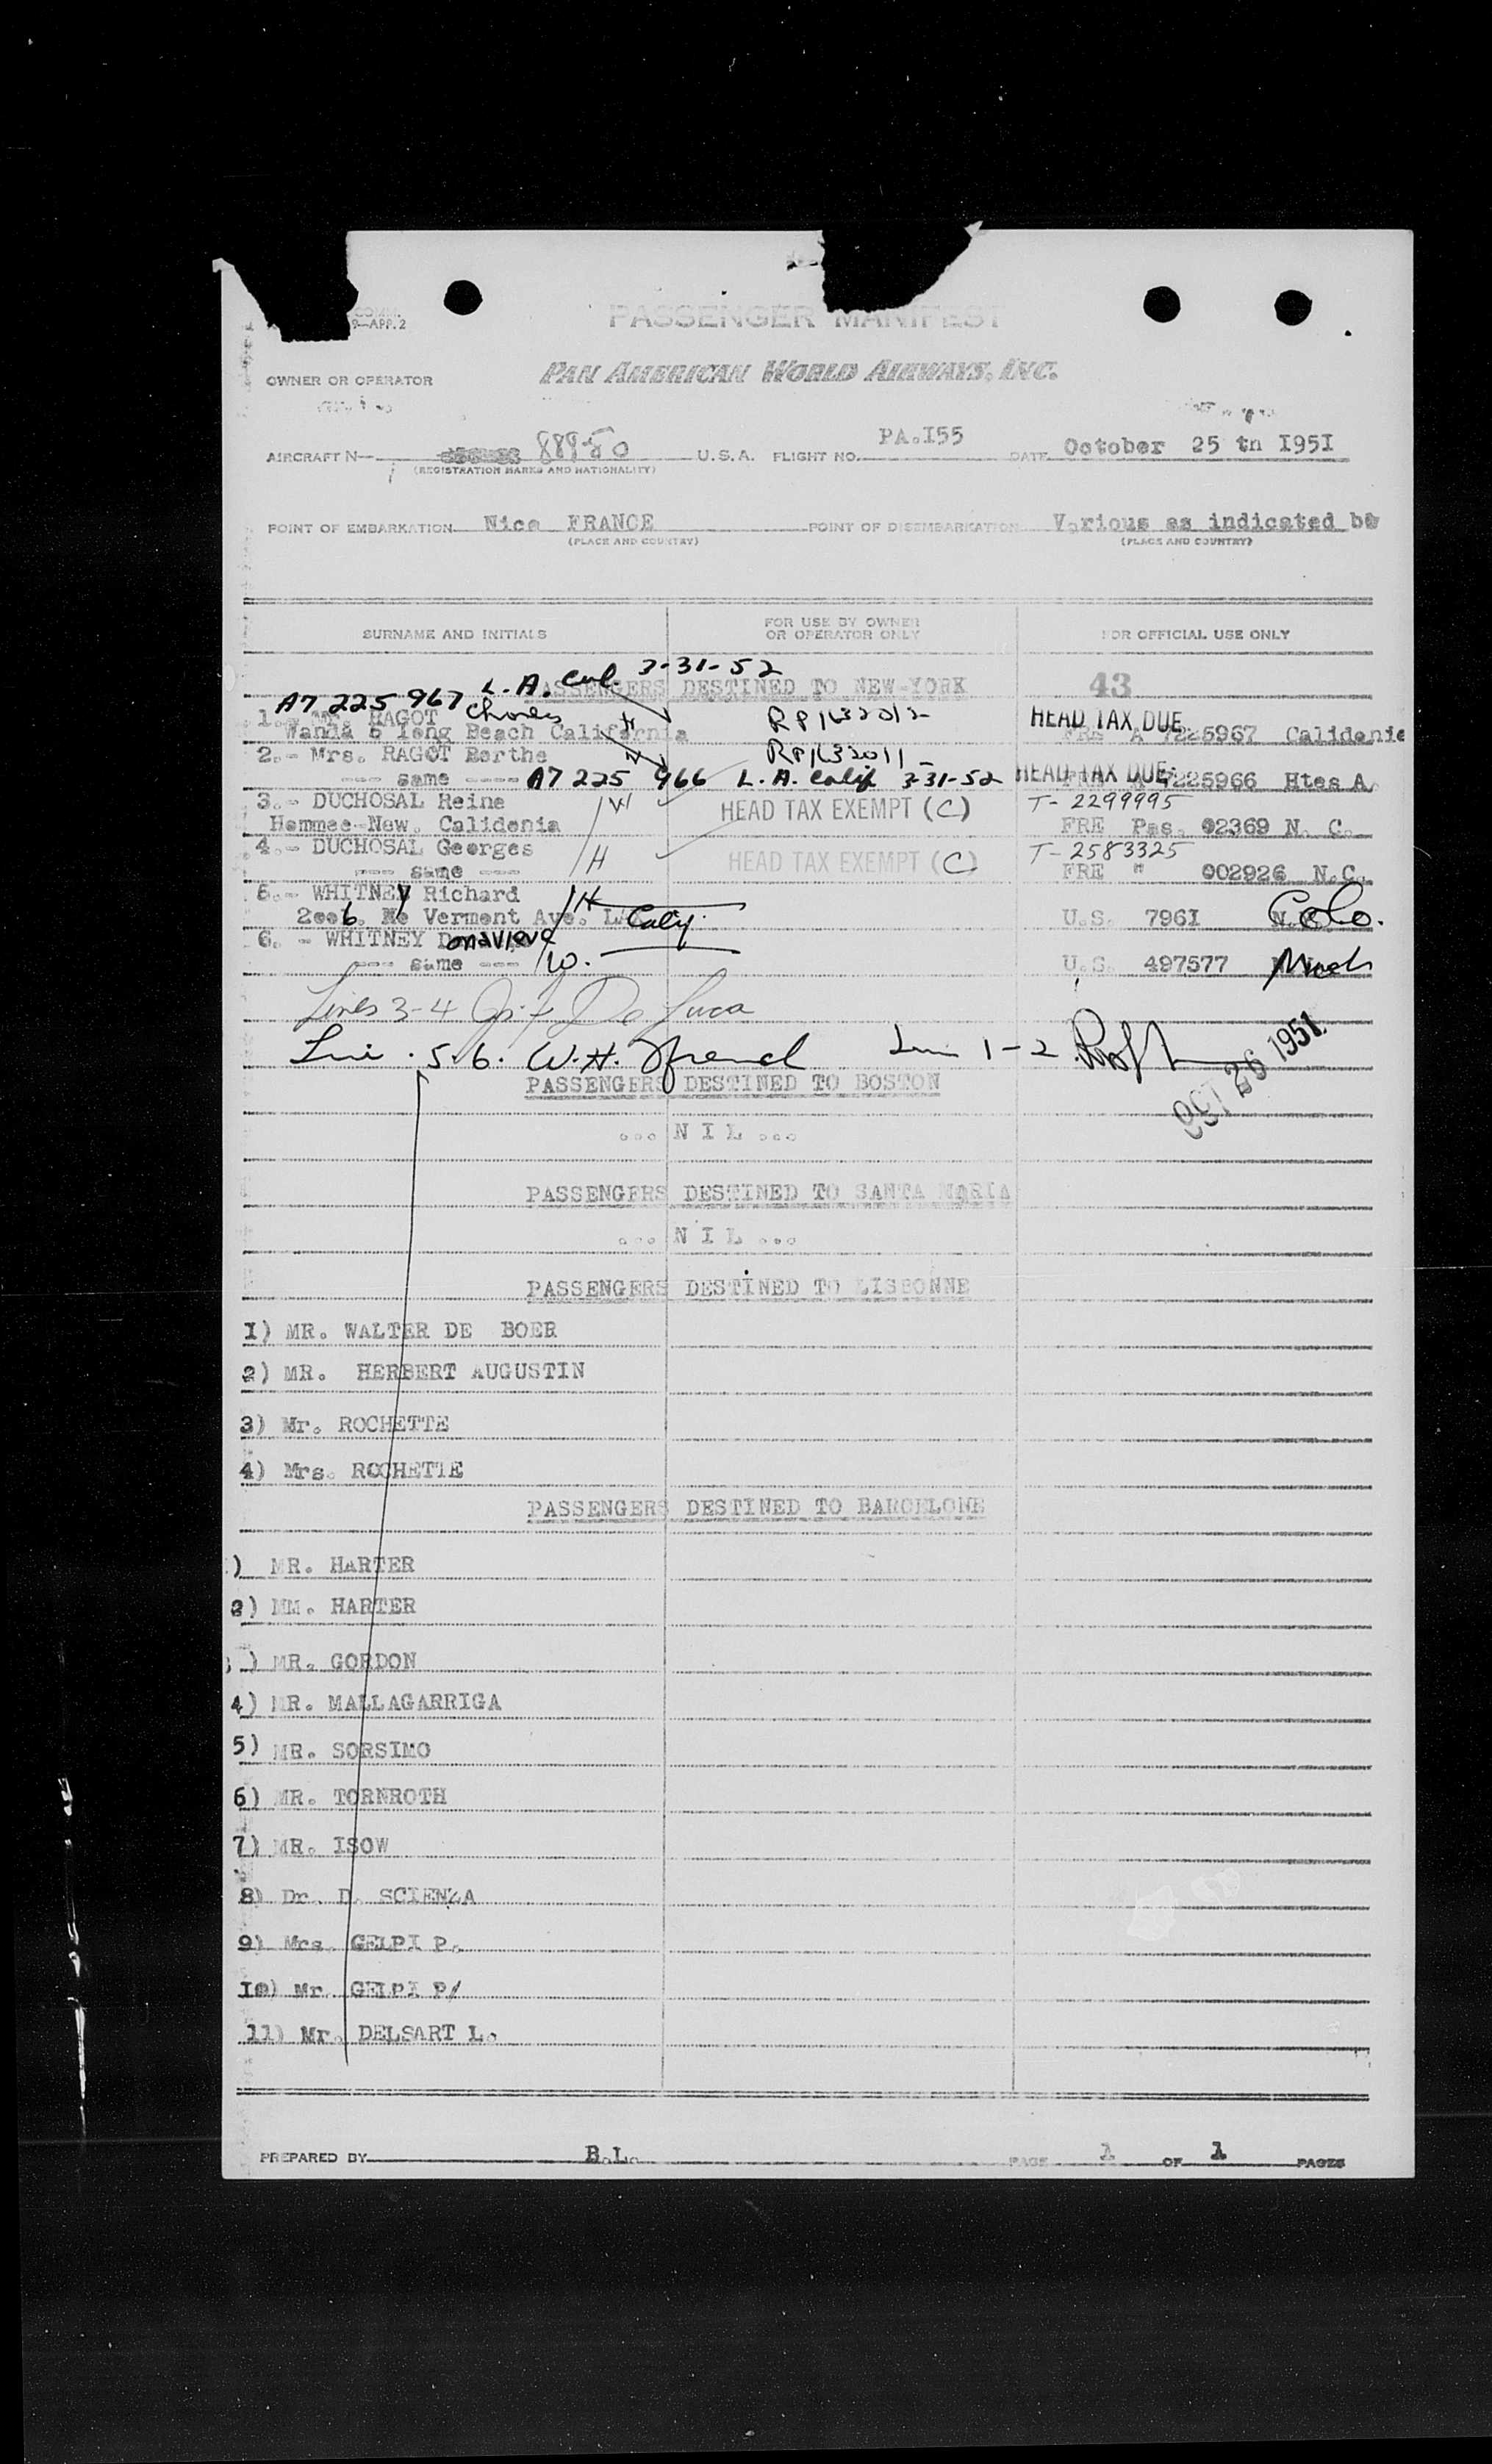 COMM.
9—APP. 2
PASSENGER MANIFEST
PAN AMERICAN WORLD AIRWAYS, INC.
OWNER OR OPERATOR
AIRCRAFT N— 88950 U.S.A. FLIGHT NO. PA.I55 DATE October 25 th I95I
(REGISTRATION MARKS AND NATIONALITY)
POINT OF EMBARKATION Nice FRANCE POINT OF DISEMBARKATION Various as indicated be
(PLACE AND COUNTRY) (PLACE AND COUNTRY)
SURNAME AND INITIALS FOR USE BY OWNER OR OPERATOR ONLY FOR OFFICIAL USE ONLY
A7 225 967 L.A. Cal. 3-31-52
PASSENGERS DESTINED TO NEW-YORK 43
1.- Mr. RAGOT Charles H RP1632012 HEAD TAX DUE
Wanda 6 long Beach California FRE A 7225967 Calidonie
2.- Mrs. RAGOT Berthe W RP1632011
--- same ---- A7 225 966 L.A. Calif 3-31-52 HEAD TAX DUE 7225966 Htes A.
3.- DUCHOSAL Reine W HEAD TAX EXEMPT (C) T-2299995
Hommee-New. Calidonia FRE Pas. 02369 N. C.
4.- DUCHOSAL Georges H HEAD TAX EXEMPT (C) T-2583325
--- same --- FRE " 002926 N.C.
5.- WHITNEY Richard H
2006. No Vermont Ave. L.A. Calif. U.S. 796I Colo.
6. - WHITNEY
--- same --- W. U.S. 497577
Lines 3-4 De Luca
5-6. W.H. 1-2
OCT 26 1951
PASSENGERS DESTINED TO BOSTON
... N I L ...
PASSENGERS DESTINED TO SANTA MARIA
... N I L ...
PASSENGERS DESTINED TO LISBONNE
I) MR. WALTER DE BOER
2) MR. HERBERT AUGUSTIN
3) Mr. ROCHETTE
4) Mrs. ROCHETTE
PASSENGERS DESTINED TO BARCELONE
) MR. HARTER
2) MM. HARTER
) MR. GORDON
4) MR. MALLAGARRIGA
5) MR. SORSIMO
6) MR. TORNROTH
7) MR. ISOW
8) Dr. D. SCIENZA
9) Mrs. GELPI P.
I0) Mr. GELPI P/
11) Mr. DELSART L.
PREPARED BY B.L. PAGE 1 OF 1 PAGES